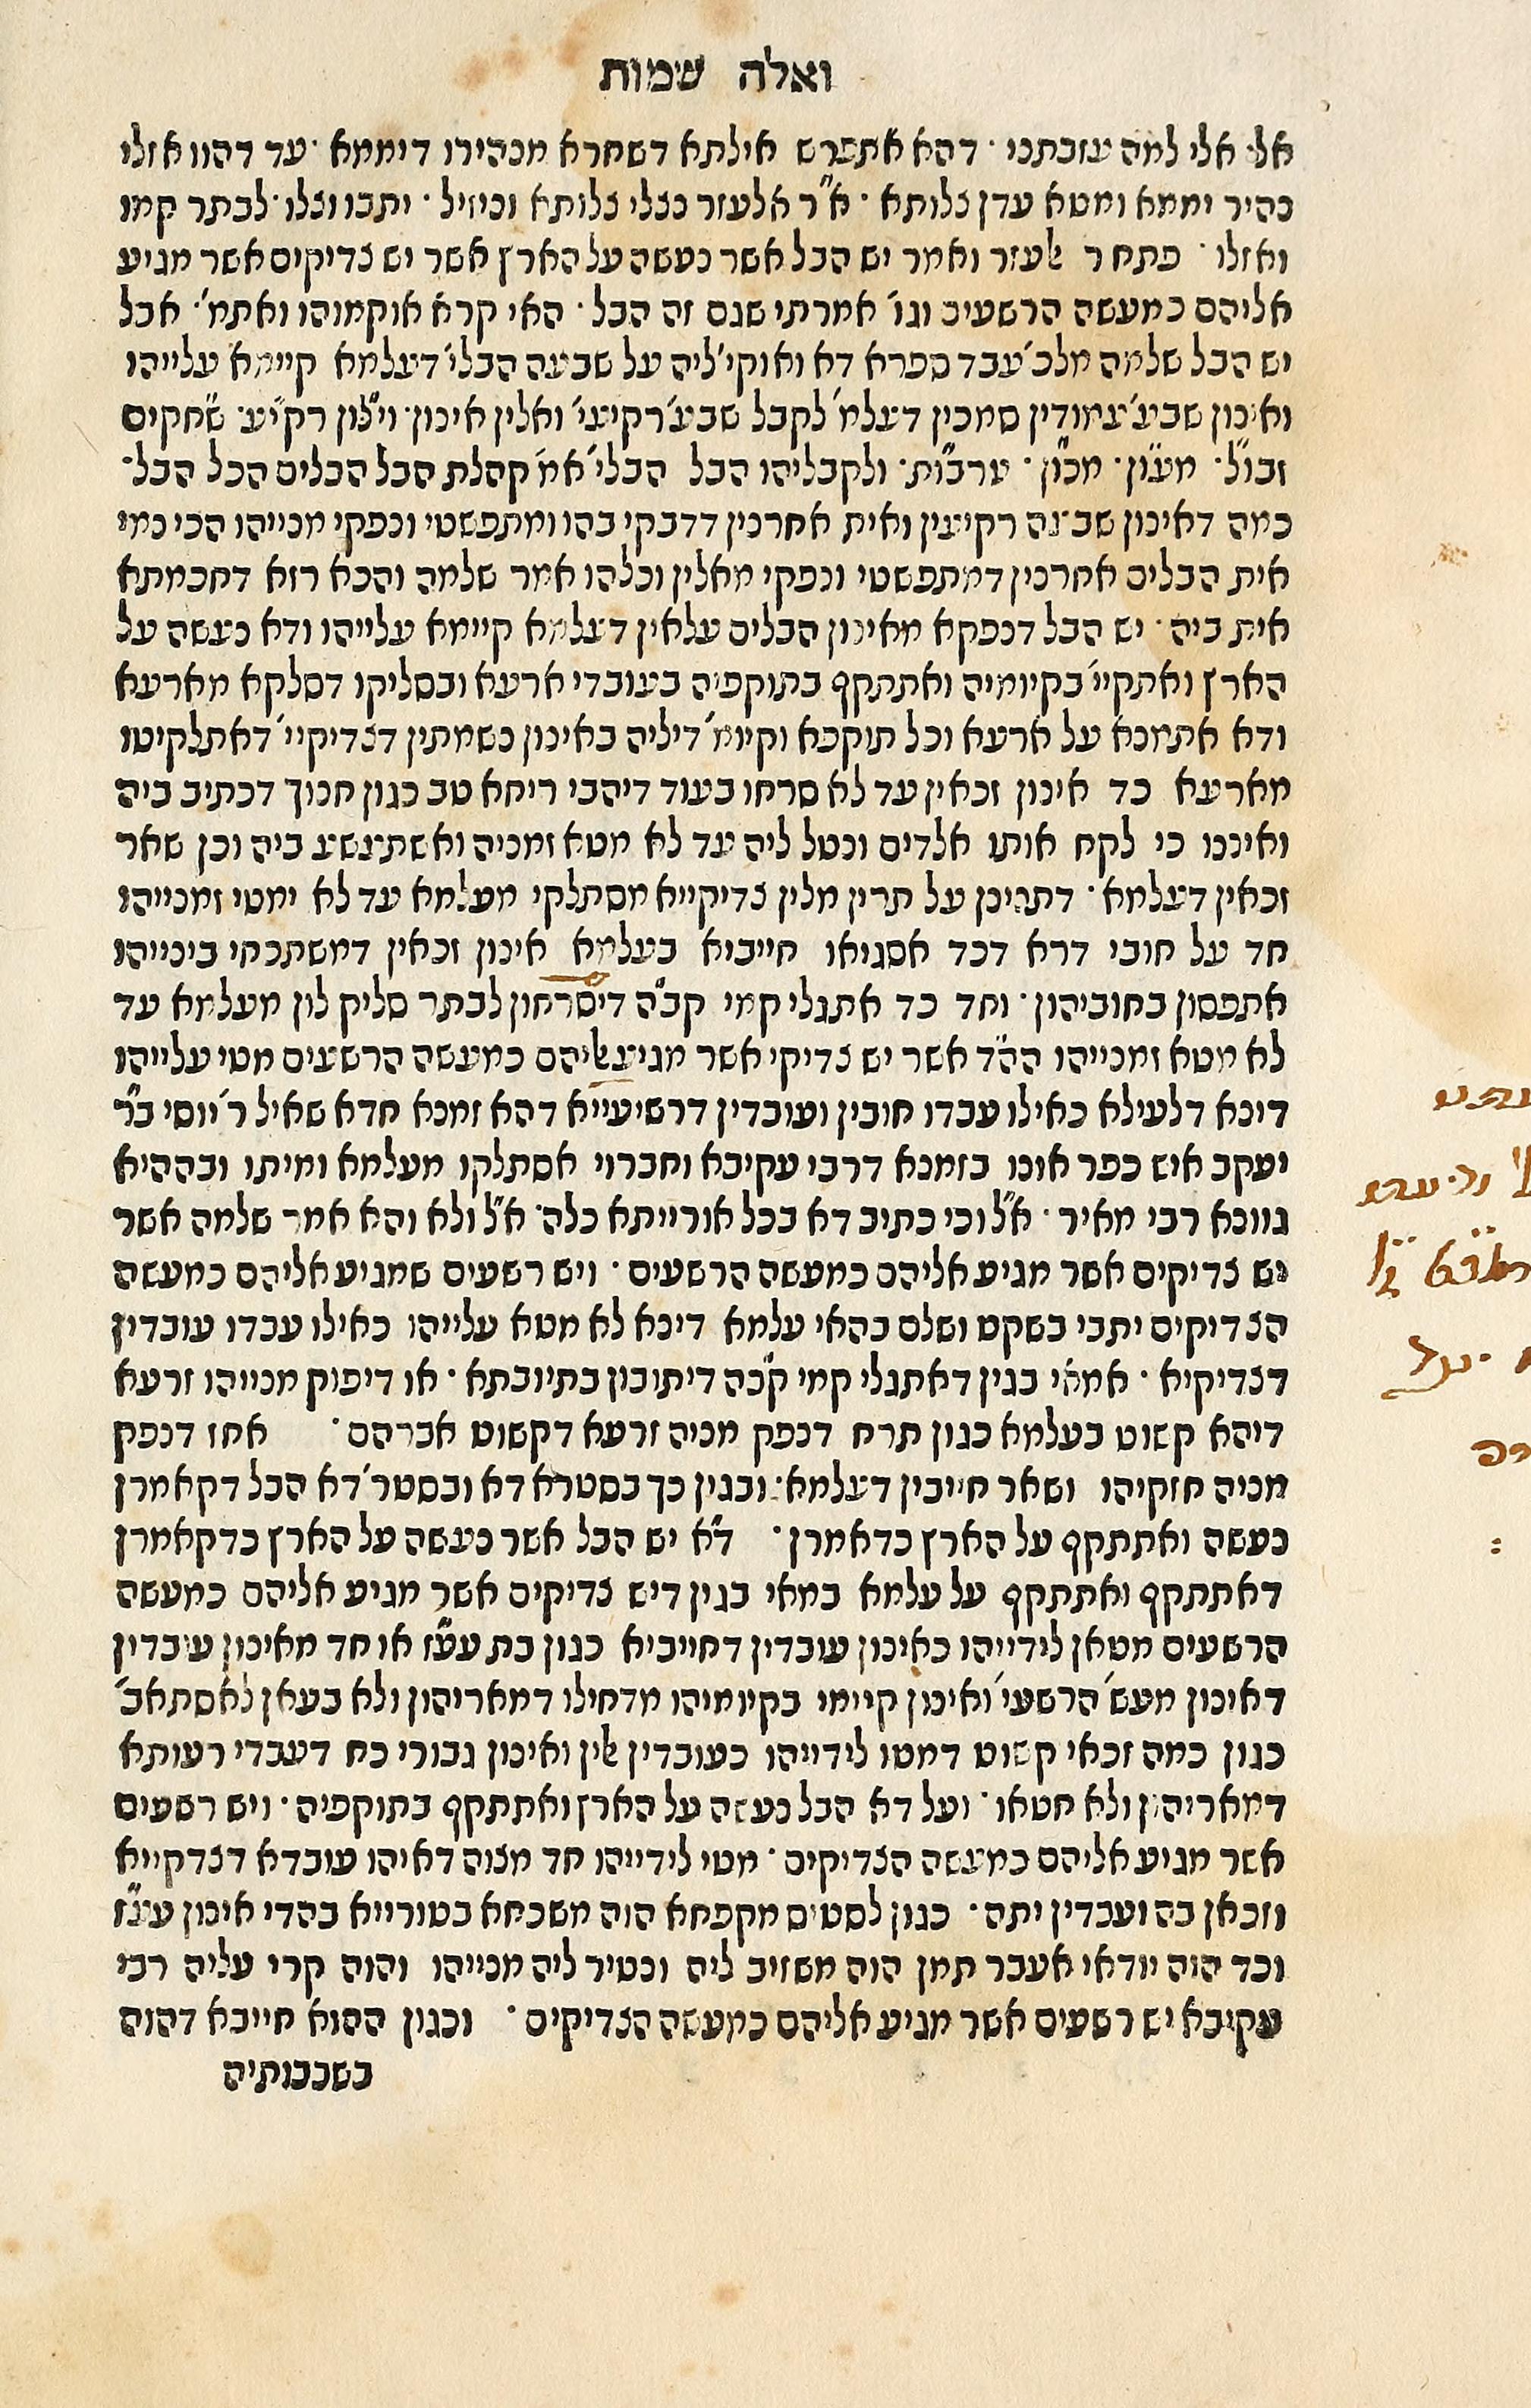 ואלה שמות
אלי אלי למה עזבתני · דהא אתפרש אילתא דשחרא מנהירו דיממא · עד דהוו אזלי
נהיר יממא ומטא עדן צלותא · א״ר אלעזר נצלי צלותא וניזיל · יתבו וצלו · לבתר קמו
ואזלו · פתח ר אלעזר ואמר יש הבל אשר נעשה על הארץ אשר יש צדיקים אשר מגיע
אליהם כמעשה הרשעים וגו׳ אמרתי שגם זה הבל · האי קרא אוקמוהו ואתמ׳ · אבל
יש הבל שלמה מלכ׳ עבד ספרא דא ואוקי׳ ליה על שבעה הבלי׳ דעלמא קיימא עלייהו
ואינון שבע׳ עמודין סמכין דעלמ׳ לקבל שבע׳ רקיעי׳ ואלין אינון · וילון רקיע · שחקים
זבול · מעון · מכון · ערבות · ולקבליהו הבל הבלי׳ אמ׳ קהלת הבל הבלים הכל הבל ·
כמה דאינון שבעה רקיעין ואית אחרנין דדבקי בהו ומתפשטי ונפקי מנייהו הכי נמי
אית הבלים אחרנין דמתפשטי ונפקי מאלין וכלהו אמר שלמה והכא רזא דחכמתא
אית ביה · יש הבל דנפקא מאינון הבלים עלאין דעלמא קיימא עלייהו ודא נעשה על
הארץ ואתקיי׳ בקיומיה ואתתקף בתוקפיה בעובדי ארעא ובסליקו דסלקא מארעא
ודא אתמנא על ארעא וכל תוקפא וקיומ׳ דיליה באינון נשמתין דצדיקיי׳ דאתלקיטו
מארעא כד אינון זכאין עד לא סרחו בעוד דיהבי ריחא טב כגון חנוך דכתיב ביה
ואיננו כי לקח אותו אלדים ונטל ליה עד לא מטא זמניה ואשתעשע ביה וכן שאר
זכאין דעלמא · דתנינן על תרין מלין צדיקייא מסתלקי מעלמא עד לא ימטי זמנייהו
חד על חובי דרא דכד אסגיאו חייביא בעלמא אינון זכאין דמשתכחי בינייהו
אתפסון בחוביהון · וחד כד אתגלי קמי קב״ה דיסרחון לבתר סליק לון מעלמא עד
לא מטא זמנייהו הה״ד אשר יש צדיקי אשר מגיע אליהם כמעשה הרשעים מטי עלייהו
דינא דלעילא כאילו עבדו חובין ועובדין דרשיעייא דהא זמנא חדא שאיל ר׳ יוסי ב״ר
יעקב איש כפר אונו בזמנא דרבי עקיבא וחברוי אסתלקו מעלמא ומיתו ובההיא
גוונא רבי מאיר · א״ל וכי כתיב דא בכל אורייתא כלה · א״ל ולא והא אמר שלמה אשר
יש צדיקים אשר מגיע אליהם כמעשה הרשעים · ויש רשעים שמגיע אליהם כמעשה
הצדיקים יתבי בשקט ושלם בהאי עלמא דינא לא מטא עלייהו כאילו עבדו עובדין
דצדיקיא · אמאי בגין דאתגלי קמי ק״בה דיתובון בתיובתא · או דיפוק מנייהו זרעא
דיהא קשוט בעלמא כגון תרח דנפק מניה זרעא דקשוט אברהם · אחז דנפק
מניה חזקיהו ושאר חייבין דעלמא · ובגין כך בסטרא דא ובסטר׳ דא הבל דקאמרן
נעשה ואתתקף על הארץ כדאמרן · ד״א יש הבל אשר נעשה על הארץ כדקאמרן
דאתתקף ואתתקף על עלמא במאי בגין דיש צדיקים אשר מגיע אליהם כמעשה
הרשעים מטאן לידייהו כאינון עובדין דחייביא כגון בת עע״ז או חד מאינון עובדין
דאינון מעש׳ הרשעי׳ ואינון קיימי בקיומיהו מדחילו דמאריהון ולא בעאן לאסתאב׳
כגון כמה זכאי קשוט דמטו לידייהו כעובדין אלין ואינון גבורי כח דעבדי רעותא
דמאריהון ולא חטאו · ועל דא הבל נעשה על הארץ ואתתקף בתוקפיה · ויש רשעים
אשר מגיע אליהם כמעשה הצדיקים · מטי לידייהו חד מצוה דאיהו עובדא דצדקייא
וזכאן בה ועבדין יתה · כגון לסטים מקפחא הוה משכחא בטורייא בהדי אינון
וכד הוה יודאי אעבר תמן הוה משזיב ליה ונטיר ליה מנייהו והוה קרי עליה רבי
עקיבא יש רשעים אשר מגיע אליהם כמעשה הצדיקים · וכגון ההוא חייבא דהוה
בשבבותיה